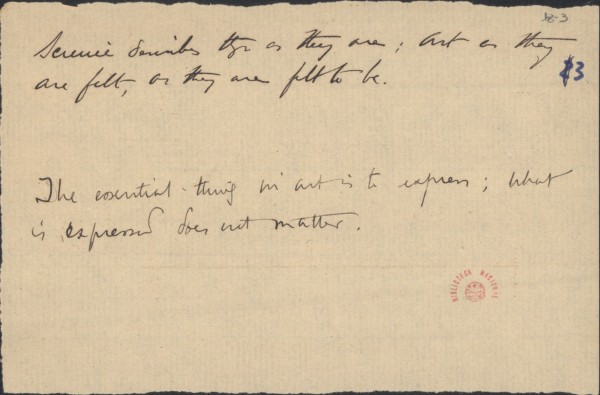 18-3
Science describes tgs as they are; art as they
are felt, as they are felt to be.
23
The essential thing in art is to express; what
is expressed does not matter.
BIBLIOTECA NACIONAL